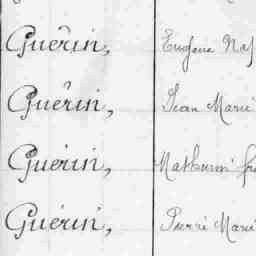 Guérin, Eugène Na
Guérin, Jean Marie
Guérin, Mathurin
Guérin, Pierre Marie